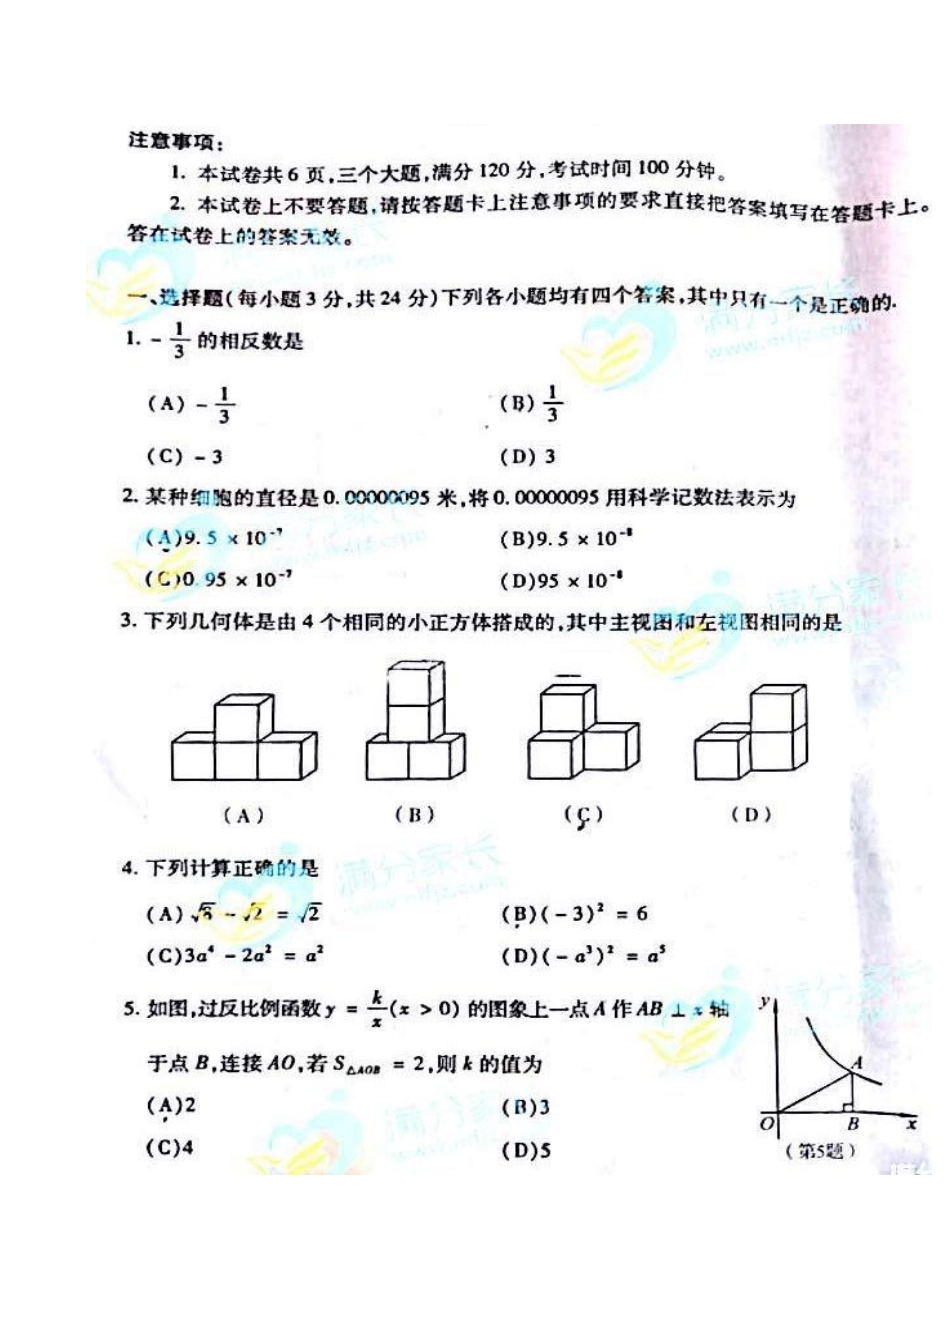 注意事项:
1. 本试卷共6页,三个大题,满分120分,考试时间100分钟。
2. 本试卷上不要答题,请按答题卡上注意事项的要求直接把答案填写在答题卡上。
答在试卷上的答案无效。
一、选择题(每小题3分,共24分)下列各小题均有四个答案,其中只有一个是正确的.
1. -1/3 的相反数是
(A) -1/3 (B) 1/3
(C) -3 (D) 3
2. 某种细胞的直径是0.00000095米,将0.00000095用科学记数法表示为
(A)9.5×10⁻⁷ (B)9.5×10⁻⁸
(C)0.95×10⁻⁷ (D)95×10⁻⁸
3. 下列几何体是由4个相同的小正方体搭成的,其中主视图和左视图相同的是
(A) (B) (C) (D)
4. 下列计算正确的是
(A)√8-√2=√2 (B)(-3)²=6
(C)3a⁴-2a²=a² (D)(-a³)²=a⁵
5. 如图,过反比例函数y=k/x(x>0)的图象上一点A作AB⊥x轴
于点B,连接AO,若S△AOB=2,则k的值为
(A)2 (B)3
(C)4 (D)5
y
A
O B x
(第5题)